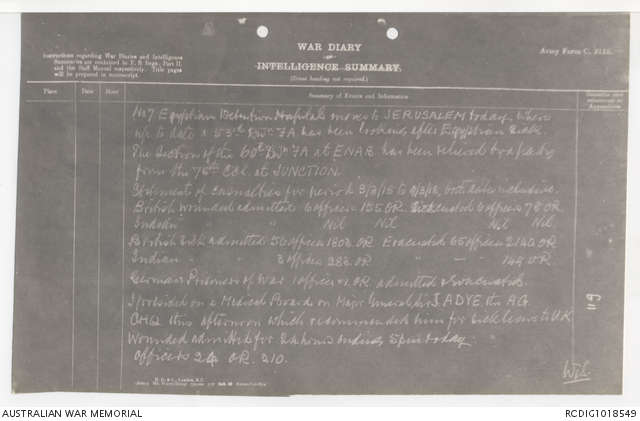 WAR DIARY
OR
INTELLIGENCE SUMMARY.
(Erase heading not required.)
Army Form C. 2118.
Instructions regarding War Diaries and Intelligence
Summaries are contained in F. S. Regs., Part II.
and the Staff Manual respectively. Title pages
will be prepared in manuscript.
Place Date Hour Summary of Events and Information
No 7 Egyptian Detention Hospital moves to JERUSALEM today, where
up to date a 53rd Divn FA has been looking after Egyptian sick.
The section of the 60th Divn FA at ENAB has been relieved by a party
from the 75th CCS at JUNCTION.
Statement of casualties for period 3/3/18 to 9/3/18, both dates inclusive.
British wounded admitted 6 officers 155 OR. Evacuated 6 officers 78 OR
Indian " " Nil Nil Nil Nil
British Sick admitted 50 officers 1808 OR Evacuated 65 officers 2140 OR
Indian " 3 offices 288 OR 144 OR.
German Prisoners of War 1 officer OR admitted & Evacuated.
I presided on a Medical Board on Major General Sir J. ADYE the AG.
GHQ this afternoon which recommended him for Sick leave to UK
Wounded admitted for 24 hours ending 6pm today
Officers 24 OR. 210.
119
RCDIG1018549
AUSTRALIAN WAR MEMORIAL